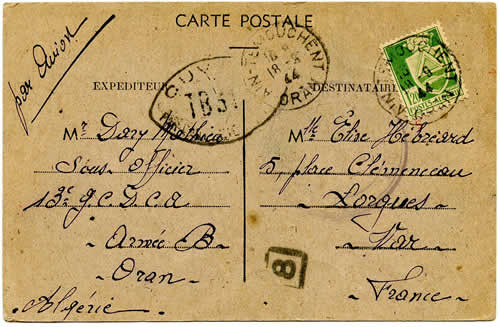 CARTE POSTALE
par Avion
EXPEDITEUR
Mr Dary Mathieu
Sous Officier
13e G.C.D.C.A
- Armée B -
- Oran -
- Algérie -
OUV
TB31
AIN-TEMOUCHENT
18-8
44
ORAN
DESTINATAIRE
Mlle Elise Hébréard
5, place Clémenceau
- Lorgues -
- Var -
- France -
8